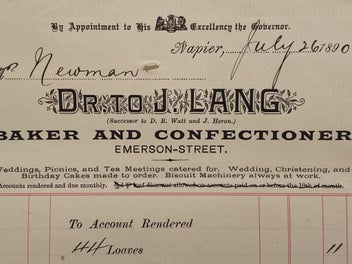 By Appointment to His Excellency the Governor.
Napier, July 26 1890
Newman
DR. TO J. LANG
(Successor to D. B. Watt and J. Heron.)
BAKER AND CONFECTIONER
EMERSON-STREET.
Weddings, Picnics, and Tea Meetings catered for. Wedding, Christening, and
Birthday Cakes made to order. Biscuit Machinery always at work.
Accounts rendered and due monthly. discount allowed on accounts paid on or before the 10th of month.
To Account Rendered
44 Loaves 11